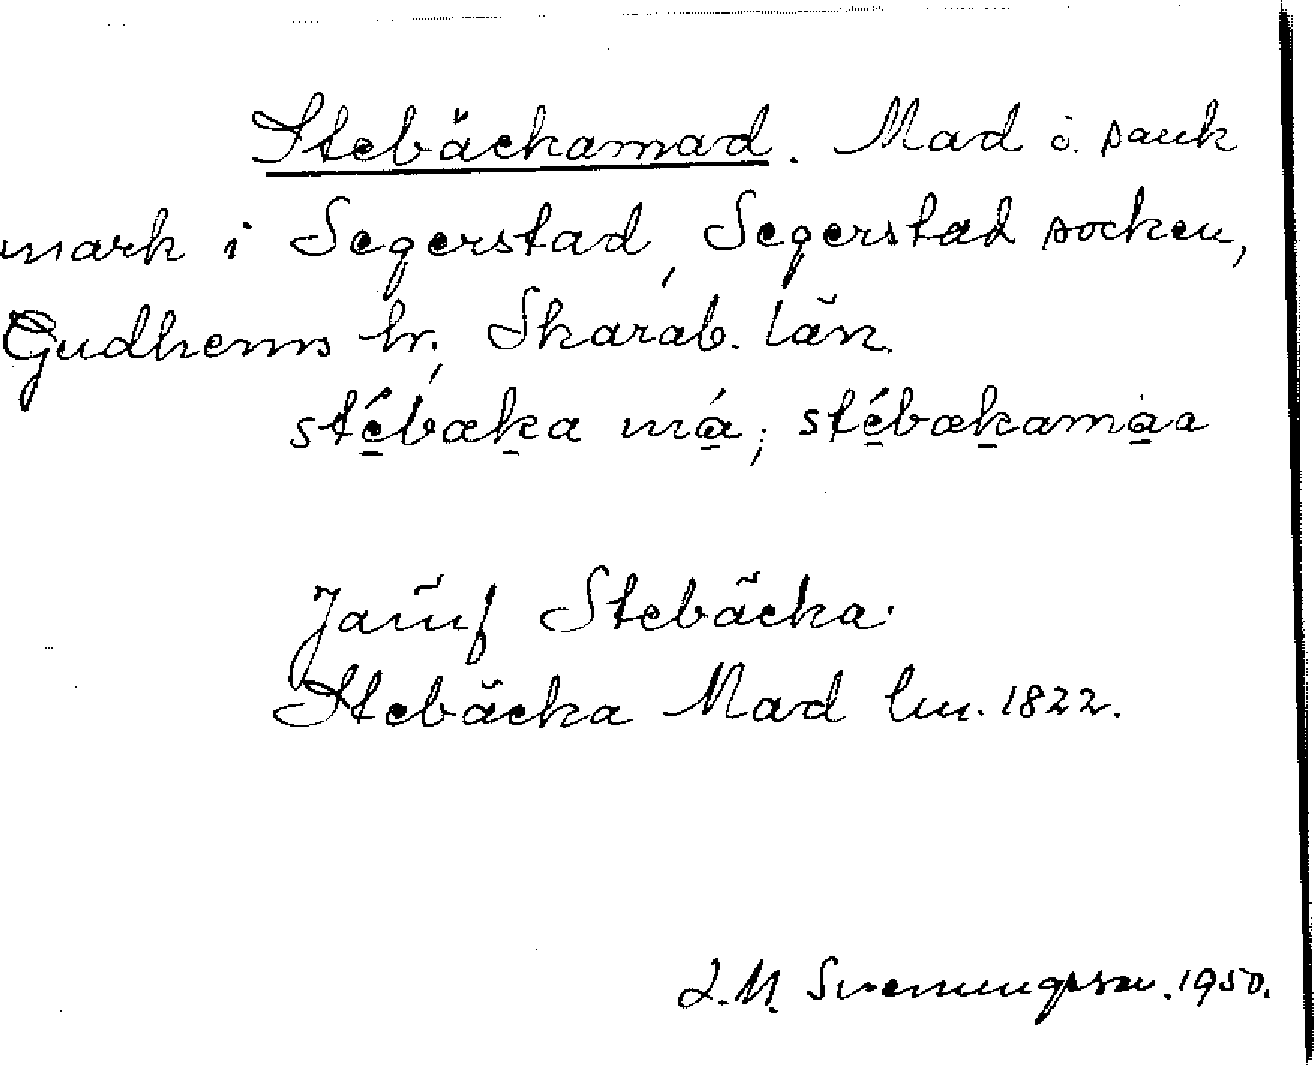 Stebäckamad. Mad o. sank
mark i Segerstad, Segerstad socken,
Gudhems hr, Skarab. län.
stébæka má; stébækamáa
Jämf Stebäcka.
Stebäcka Mad lm. 1822.
L.M. Svenungsson. 1950.